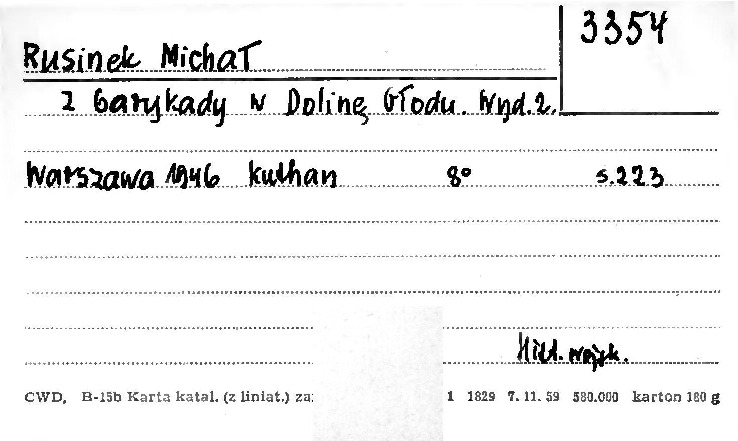 3354
Rusinek Michał
Z barykady w Dolinę Głodu. Wyd. 2.
Warszawa 1946 Kuthan 8° s. 223
Hist. wojsk.
CWD, B-15b Karta katal. (z liniat.) za: 1 1829 7. 11. 59 580.000 karton 180 g